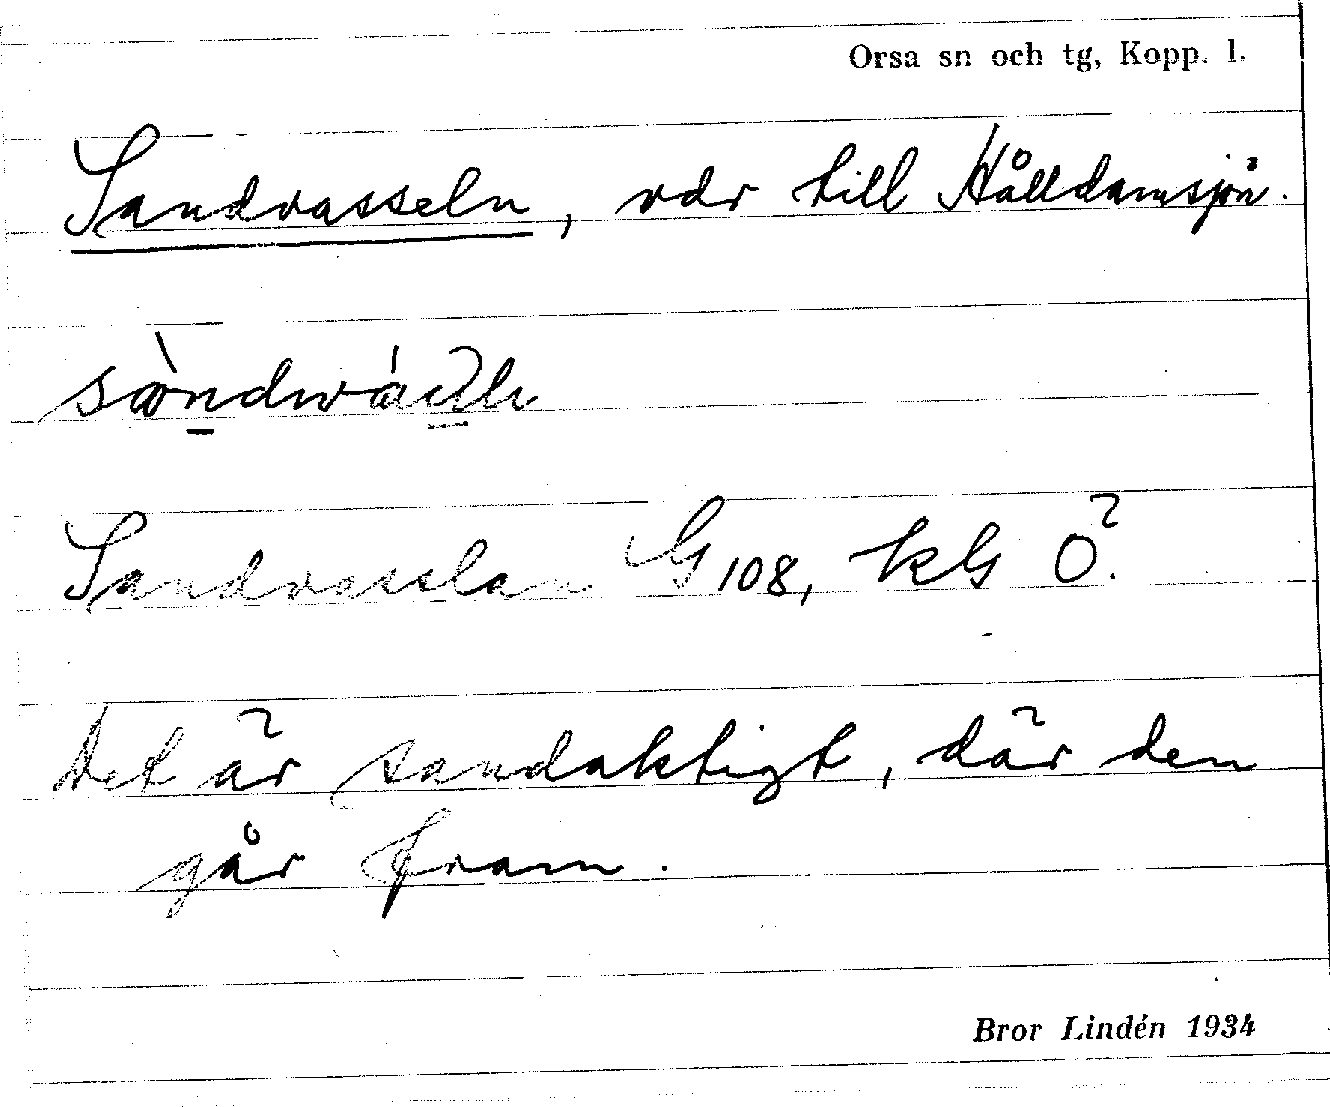 Orsa sn och tg, Kopp. l.
Sandvasseln, vdr till Hålldamsjön.
Sandvasslan G108, kG Ö.
Det är sandaktigt, där den
går fram.
Bror Lindén 1934